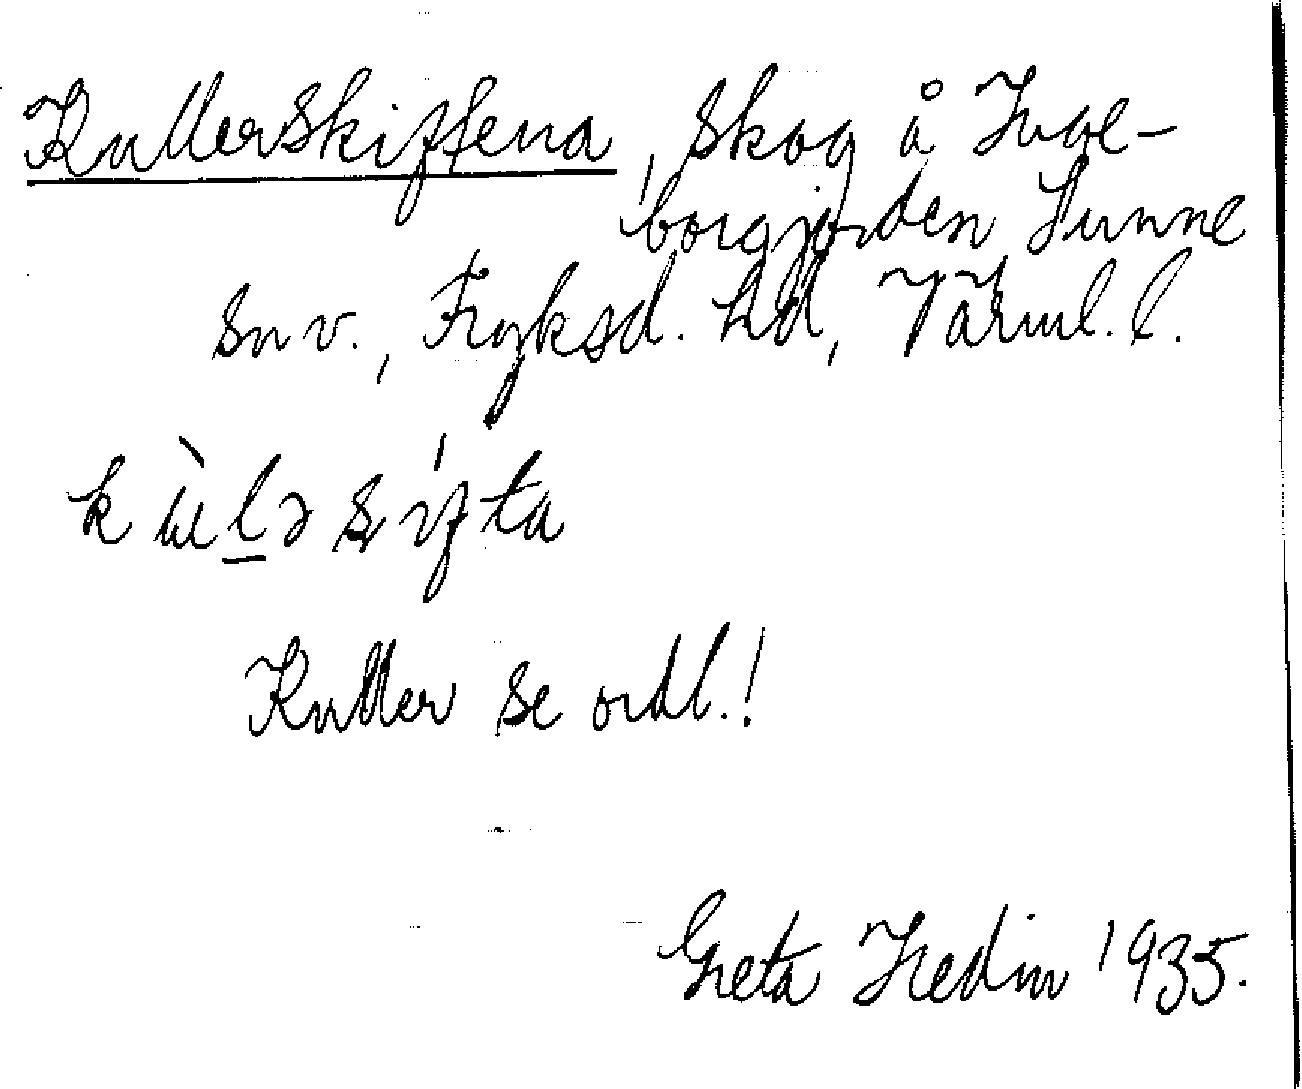 Kullerskiftena, skog å Inge-
borgjorden Sunne
sn v., Fryksd. hd, Värml. l.
kùlə sífta
Kuller se ordl.!
Greta Hedin 1935.